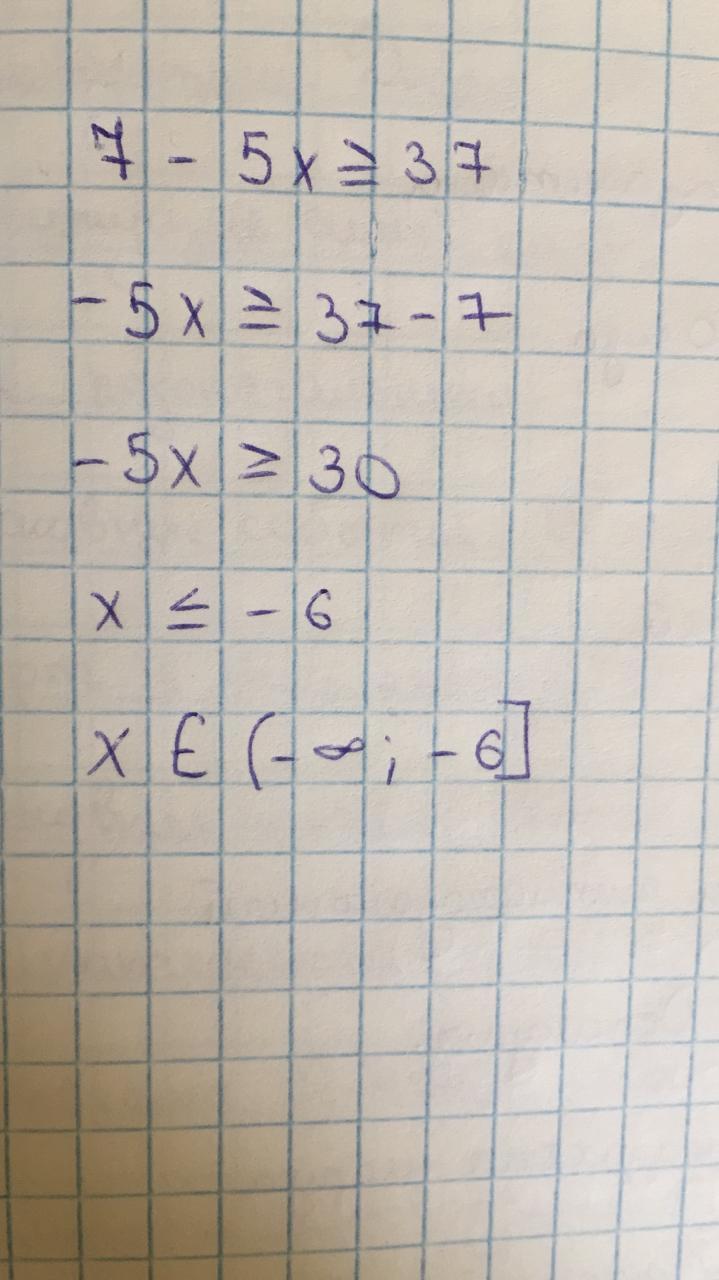 7 - 5x ≥ 37
-5x ≥ 37 - 7
-5x ≥ 30
x ≤ -6
x ∈ (-∞; -6]